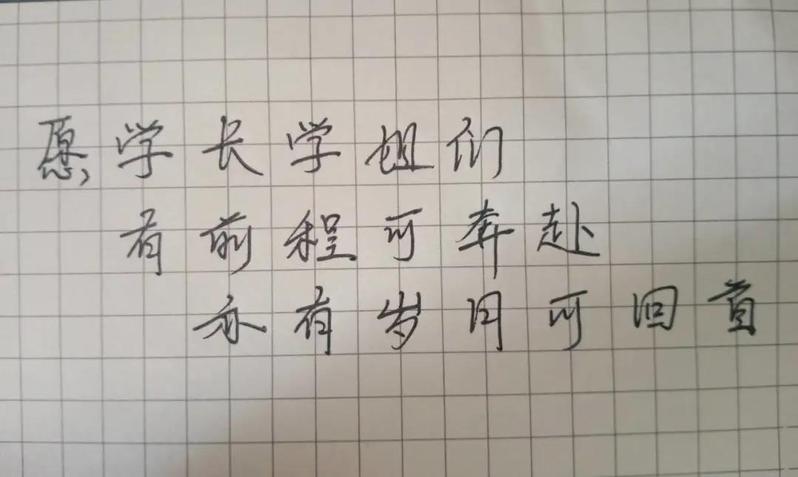 愿学长学姐们
有前程可奔赴
亦有岁月可回首